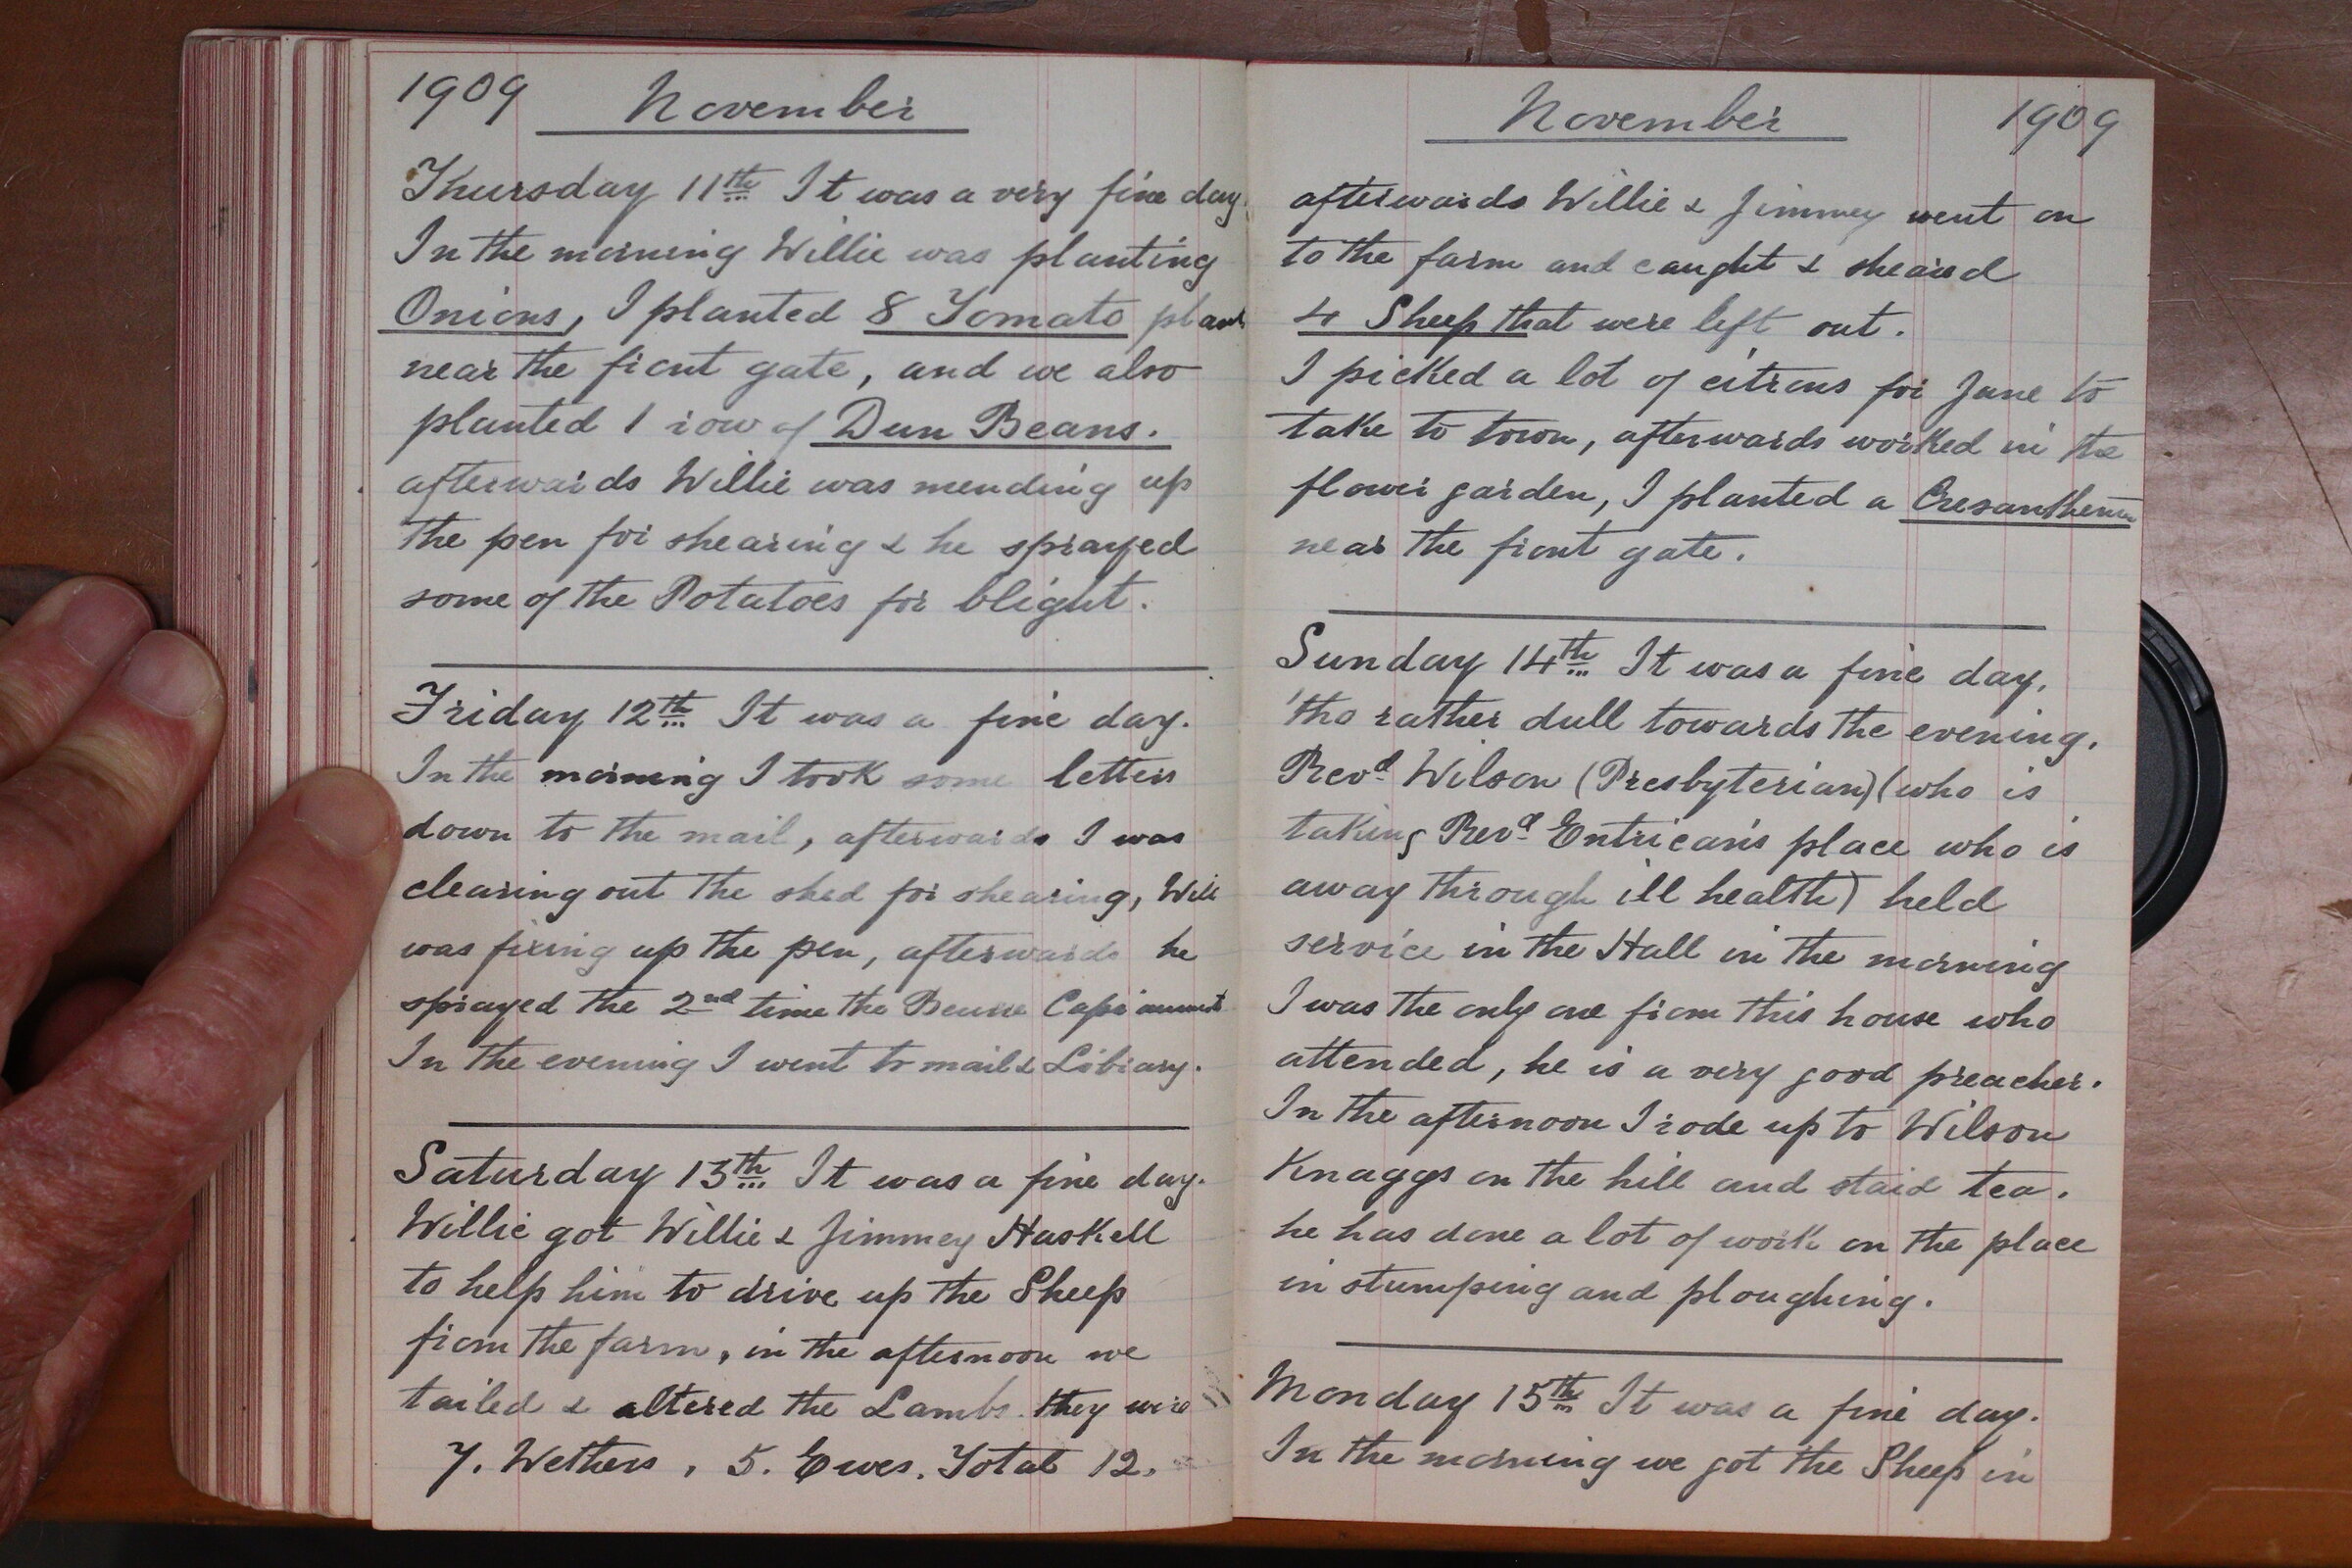 1909 November
Thursday 11th It was a very fine day
In the morning Willie was planting
Onions, I planted 8 Tomato plants
near the front gate, and we also
planted 1 row of Dun Beans.
afterwards Willie was mending up
the pen for shearing & he sprayed
some of the Potatoes for blight.
Friday 12th It was a fine day.
In the morning I took some letters
down to the mail, afterwards I was
clearing out the shed for shearing, Will
was fixing up the pen, afterwards he
sprayed the 2nd time the Beurre Capiaumont
In the evening I went to mail & Library.
Saturday 13th It was a fine day.
Willie got Willie & Jimmey Haskell
to help him to drive up the Sheep
from the farm, in the afternoon we
tailed & altered the Lambs. they were
7. Wethers, 5. Ewes. Total 12.
November 1909
afterwards Willie & Jimmey went on
to the farm and caught & sheared
4 Sheep that were left out.
I picked a lot of citrons for Jane to
take to town, afterwards worked in the
flower garden, I planted a Cresanthemum
near the front gate.
Sunday 14th It was a fine day,
'tho rather dull towards the evening.
Revd Wilson (Presbyterian) (who is
taking Revd Entrican's place who is
away through ill health) held
service in the Hall in the morning
I was the only one from this house who
attended, he is a very good preacher.
In the afternoon I rode up to Wilson
Knaggs on the hill and staid tea.
he has done a lot of work on the place
in stumping and ploughing.
Monday 15th It was a fine day.
In the morning we got the Sheep in